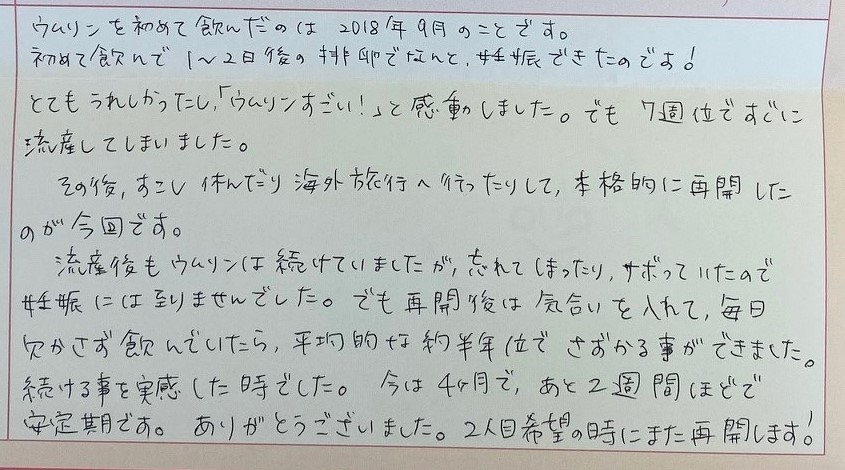 ウムリンを初めて飲んだのは 2018年9月のことです。
初めて飲んで 1～2日後の排卵でなんと、妊娠できたのです!
とてもうれしかったし、「ウムリンすごい!」と感動しました。でも 7週位ですぐに
流産してしまいました。
その後、すこし休んだり海外旅行へ行ったりして、本格的に再開した
のが今回です。
流産後もウムリンは続けていましたが、忘れてしまったり、サボっていたので
妊娠には至りませんでした。でも再開後は気合いを入れて、毎日
欠かさず飲んでいたら、平均的な約半年位でさずかる事ができました。
続ける事を実感した時でした。 今は4ヶ月で、あと2週間ほどで
安定期です。 ありがとうございました。2人目希望の時にまた再開します!